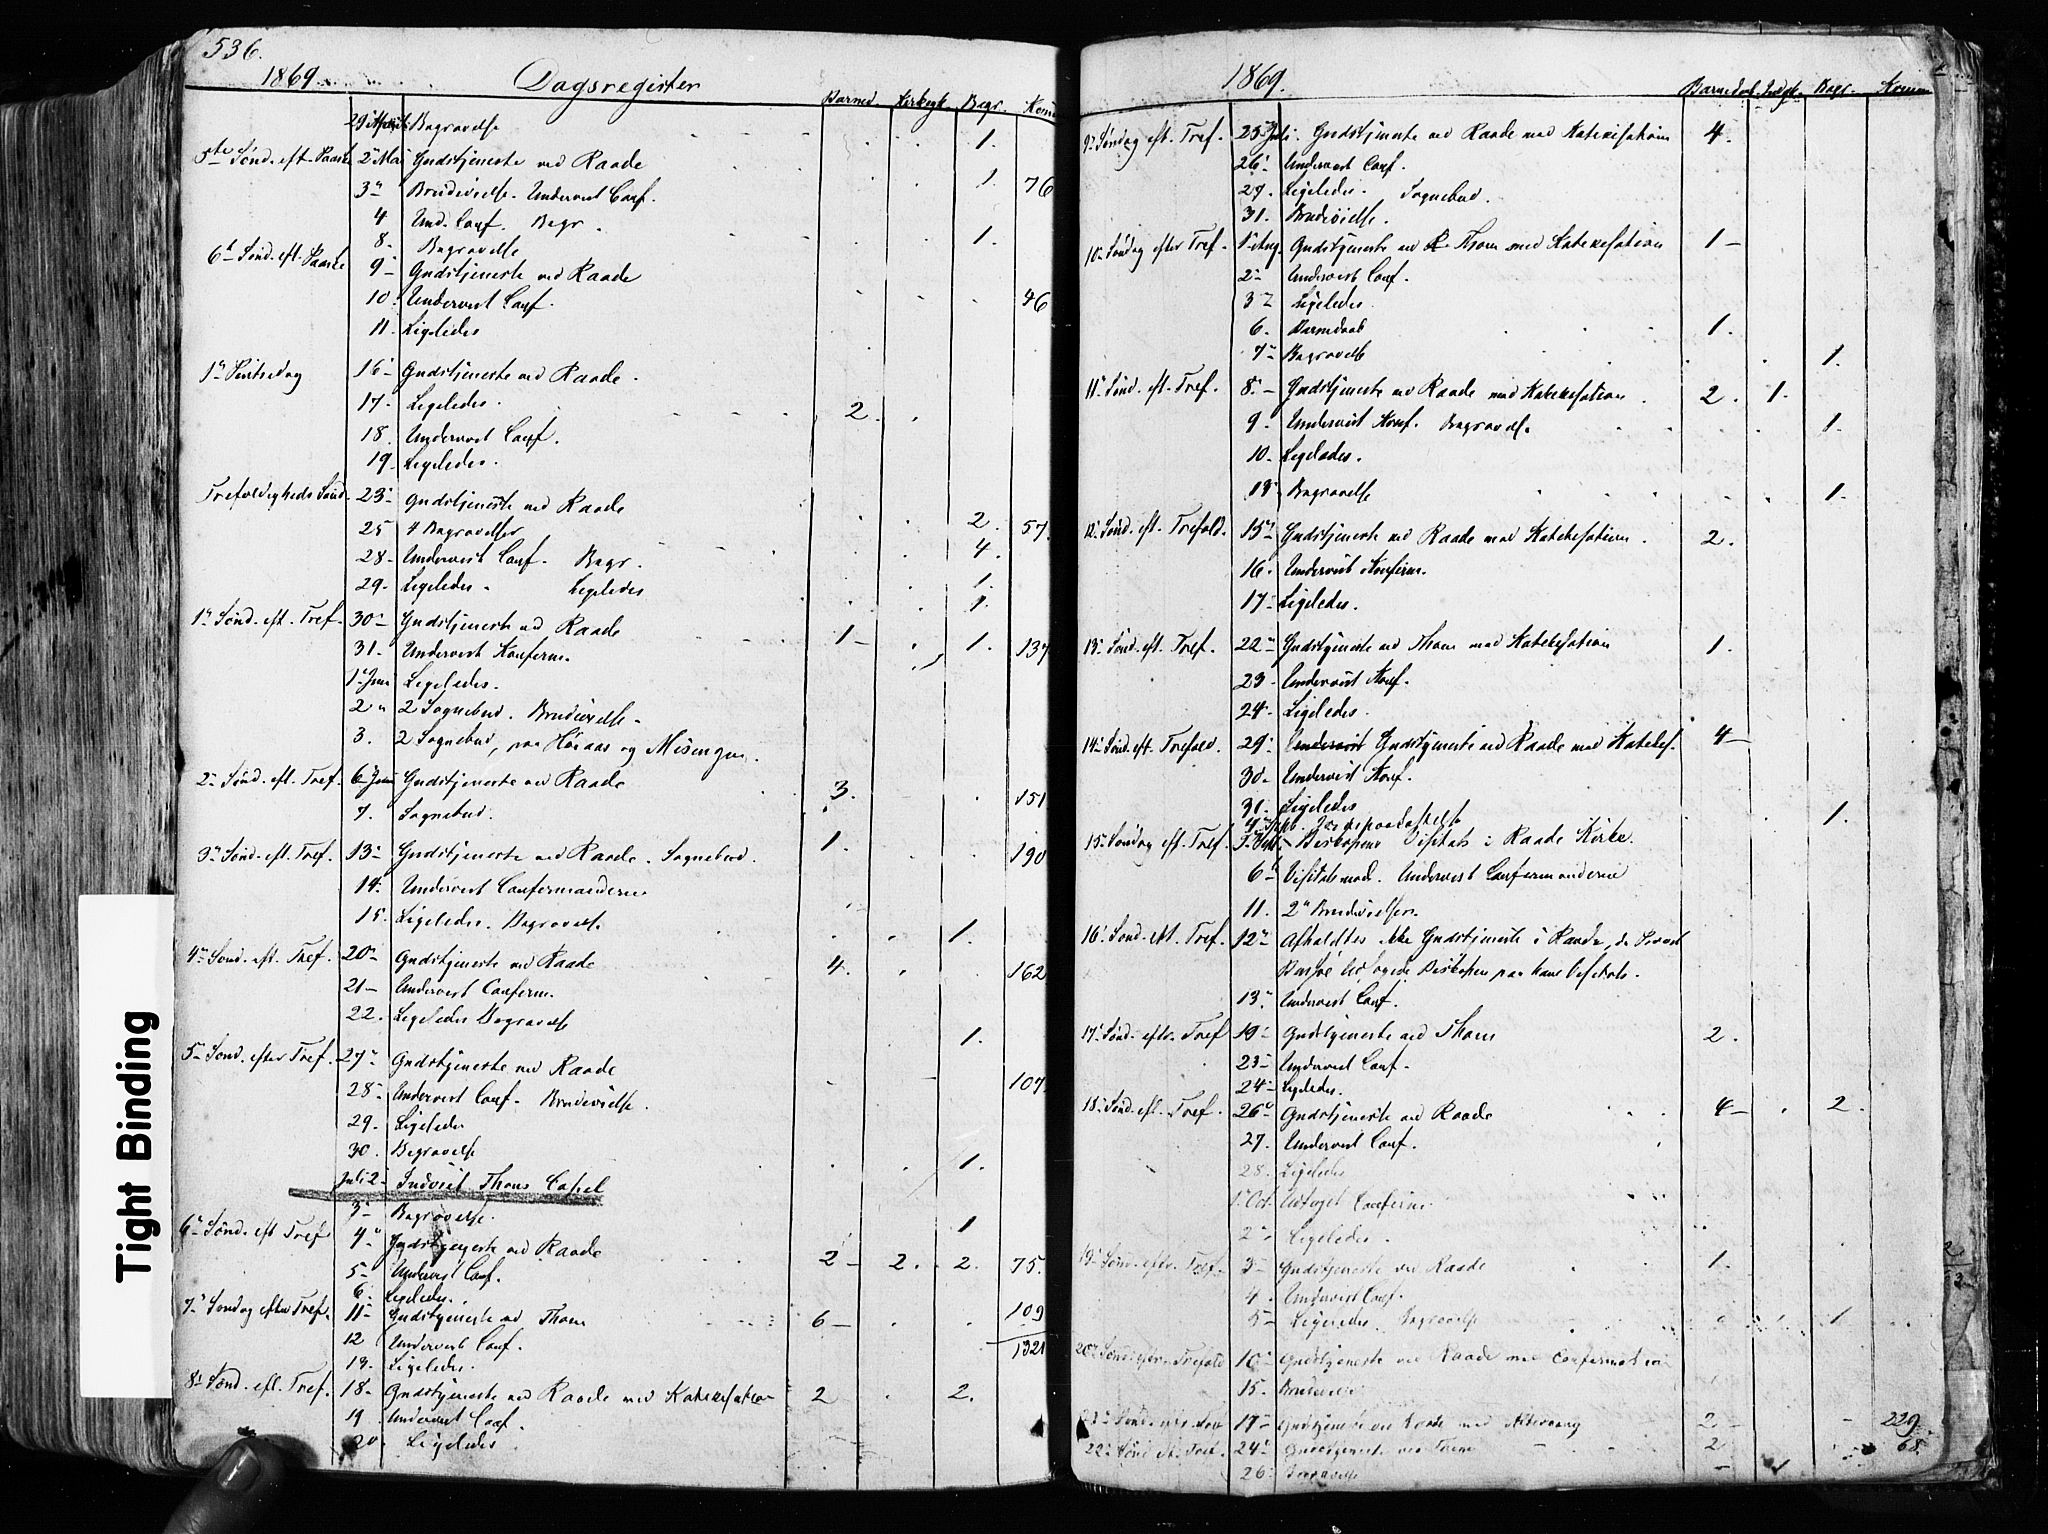 536.
1869. Dagsregister
Barned. Kirkegk. Begr. Kom
29 April Begravelse 1.
5te Sønd. eft. Paaske 2 Mai Gudstjeneste ved Raade 1. 76
3 Brudevielse. Undervist Conf.
4 Und. Conf. Begr. 1.
8. Begravelse
6te Sønd. eft. Paaske 9 Gudstjeneste ved Raade 46
10. Undervist Conf.
11. Ligeledes
1te Pintsedag 16 Gudstjeneste ved Raade.
17. Ligeledes. 2.
18. Undervist Conf.
19. Ligeledes.
Trefoldigheds Sønd. 23 Gudstjeneste ved Raade 2. 57.
25 4 Begravelser 4.
28. Undervist Conf. Begr. 1.
29. Ligeledes. Ligeledes 1.
1 Sønd. eft. Tref. 30 Gudstjeneste ved Raade 1 1. 137
31. Undervist Konferm.
1 Juni Ligeledes.
2 2 Sognebud. Brudevielse.
3. 2 Sognebud, paa og Misingen.
2 Sønd. eft. Tref. 6 Juni Gudstjeneste ved Raade 3. 151
7. Sognebud.
3 Sønd. eft. Tref. 13 Gudstjeneste ved Raade. Sognebud. 1. 190
14. Undervist Confermanderne
15. Ligeledes. Begravelse 1.
4 Sønd. eft. Tref. 20 Gudstjeneste ved Raade 4. 162
21 Undervist Conferm.
22. Ligeledes Begravelse 1.
5 Sønd. efter Tref. 27 Gudstjeneste ved Raade 107
28 Undervist Conf. Brudevielse.
29. Ligeledes
30. Begravelse 1.
Juli 2 Indviet Thoms Capel
3 Begravelse. 1
6 Sønd. eft Tref 4 Gudstjeneste ved Raade 2 2. 2. 75.
5 Undervist Conf.
6. Ligeledes.
7 Søndag efter Tref. 11 Gudstjeneste ved Thom 6 109
12 Undervist Conf. 1321
13. Ligeledes.
8 Sønd. eft. Tref. 18 Gudstjeneste ved Raade med Katekesation 2 2.
19. Undervist Conf.
20. Ligeledes.
Tight Binding
1869.
Barnedaab. Begr. Komm
9 Søndag eft. Tref. 25 Juli. Gudstjeneste ved Raade med Katekisation 4.
26 Undervist Conf.
27. Ligeledes. Sognebud.
31. Brudevielse.
10 Søndag efter Tref. 1 Aug. Gudstjeneste ved Thom med Katekesation 1
2 Undervist Conf.
3 Ligeledes.
6. Barnedaab 1.
7 Begravelse 1.
11 Sønd. eft. Tref. 8. Gudstjeneste ved Raade med Katekesation. 2. 1.
9. Undervist Konf. Begravelse. 1.
10. Ligeledes.
13. Begravelse 1.
12 Sønd. eft. Trefold. 15 Gudstjeneste ved Raade med Katekesation. 2.
16. Undervist Konferm.
17 Ligeledes.
13 Sønd. eft. Tref. 22 Gudstjeneste ved Thom med Katekesation 1.
23 Undervist Konf.
24. Ligeledes.
14 Sønd. eft. Trefold. 29 Undervist Gudstjeneste ved Raade med Katekes. 4
30. Undervist Konf.
31. Ligeledes
4 Sept. Jordspaakastelse 1.
15 Søndag eft. Tref. 5 Sept. Biskopens Visitats i Raade Kirke.
6 Visitatsmøde. Undervist Confermanderne
11. 2 Brudevielser.
16 Sønd. eft. Tref. 12 Afholdtes ikke Gudstjeneste i Raade, da Provst
ledsagede Biskopen paa hans Visitats.
13. Undervist Conf.
17 Sønd. eftr. Tref 19 Gudstjeneste ved Thom 2.
23 Undervist Conf.
24 Ligeledes.
18 Sønd. eft. Tref. 26 Gudstjeneste ved Raade 4 2.
27. Undervist Conf.
28. Ligeledes
1 Oct. Conferm.
2 Ligeledes.
19 Sønd. eftr. Tref. 3 Gudstjeneste ved Raade 1.
4. Undervist Conf.
5 Ligeledes. Begravelse 1
20 Sønd. eftr. Trefold 10 Gudstjeneste ved Raade med Confermation
15. Brudevi
21 Sønd. 17 Gudstjeneste ved Raade med Altergang 2 229.
22 Sønd. eft. Tref. 24 Gudstjeneste ved Thom 2 68.
26 Begravelse